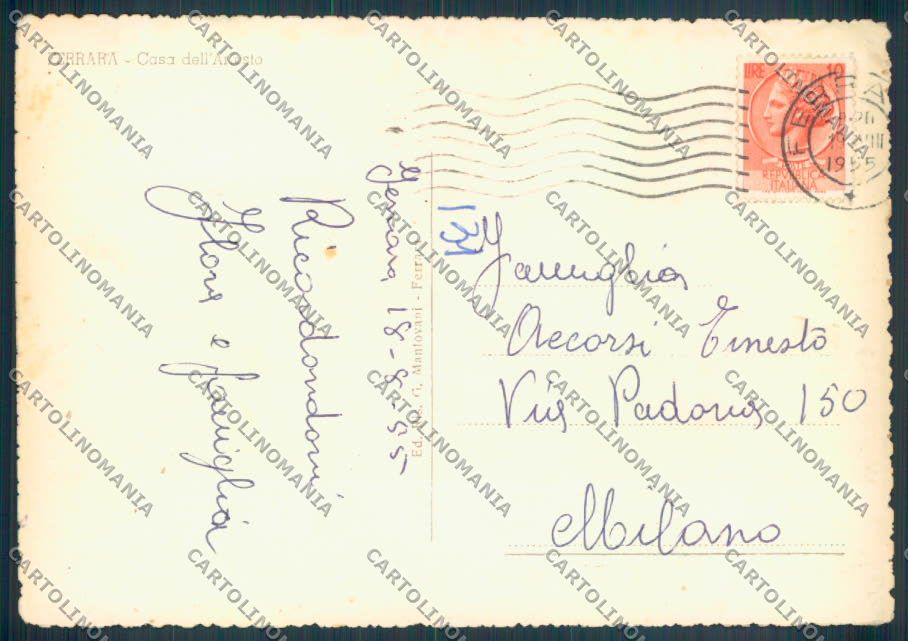 FERRARA - Casa dell'Ariosto
LIRE 10
POSTE
REPUBBLICA
ITALIANA
1955
Ferrara 18-8-55
Ricordandovi
Flora e famiglia
Ed. G. Mantovani - Ferrara
131
Famiglia
Accorsi Ernesto
Via Padova 150
Milano
CARTOLINOMANIA